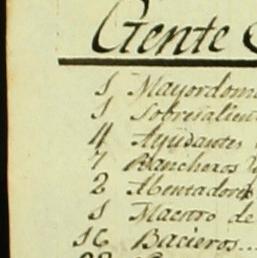 Gente
1 Mayordomo
1 Sobresalient
4 Ayudantes
7 Rancheros
2 Atentadores
1 Maestro de
16 Bacieros..